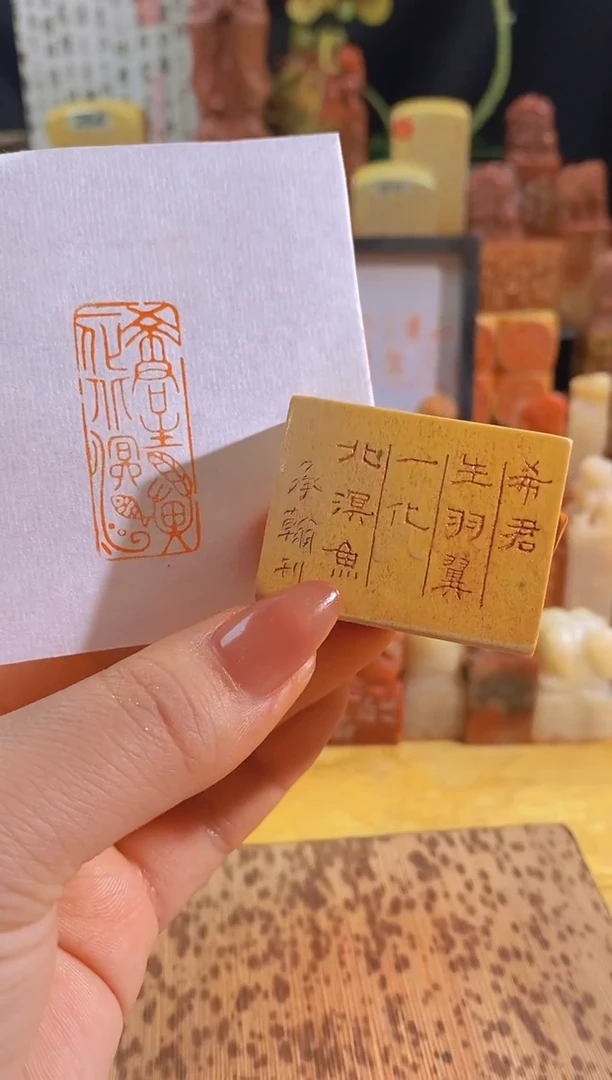 希君生羽翼
一化北溟魚
希君
生羽翼
一化
北溟魚
承翰刊